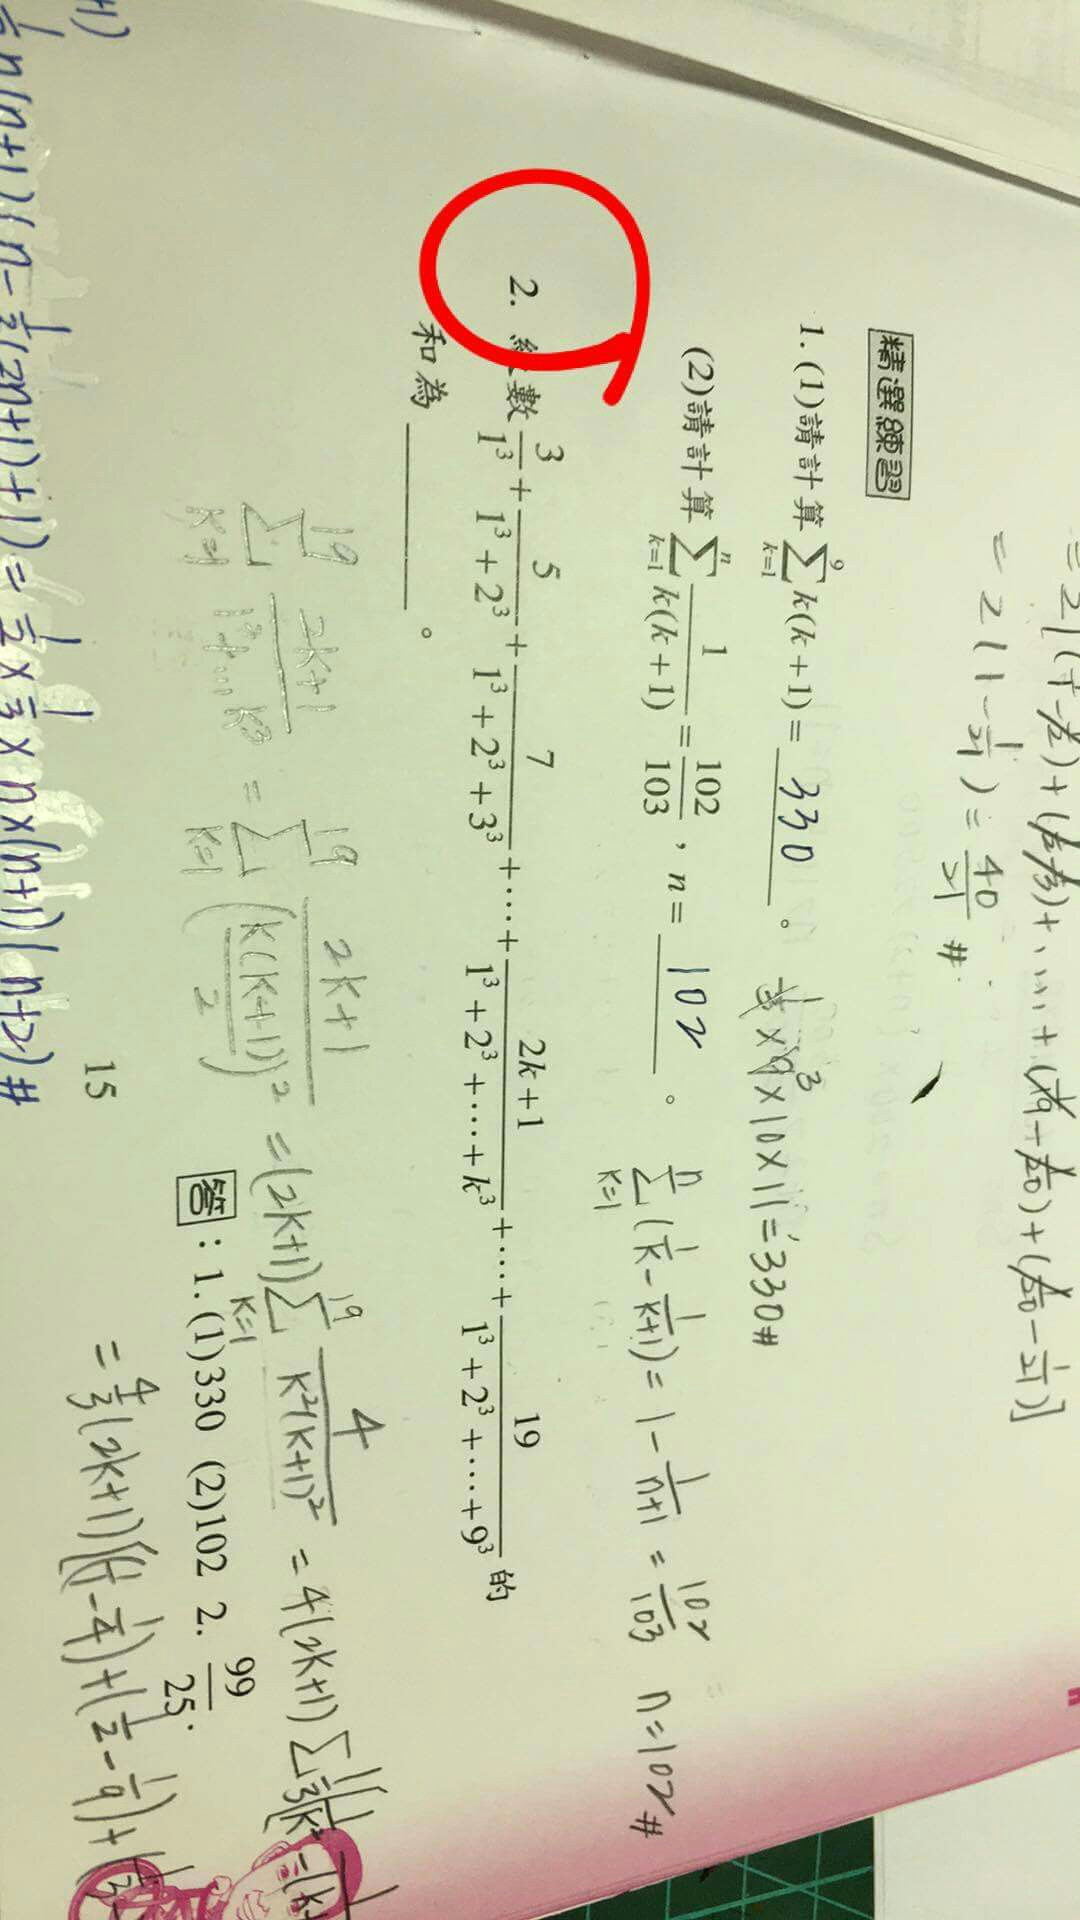 = 2[(1/1 - 1/2) + (1/2 - 1/3) + ... + (1/19 - 1/20) + (1/20 - 1/21)]
= 2(1 - 1/21) = 40/21 #
精選練習
1. (1)請計算 ∑_{k=1}^{9} k(k+1) = 330 。 1/3 × 9 × 10 × 11 = 330 # 3
(2)請計算 ∑_{k=1}^{n} 1/(k(k+1)) = 102/103 , n = 102 。 ∑_{k=1}^{n} (1/k - 1/(k+1)) = 1 - 1/(n+1) = 102/103 n=102 #
2. 級數 3/1³ + 5/(1³+2³) + 7/(1³+2³+3³) + ⋯ + (2k+1)/(1³+2³+⋯+k³) + ⋯ + 19/(1³+2³+⋯+9³) 的
和為 。
∑_{k=1}^{19} (2k+1)/(1³+...k³) = ∑_{k=1}^{19} (2k+1)/(k(k+1)/2)² = (2k+1) ∑_{k=1}^{19} 4/(k²(k+1)²) = 4(2k+1) ∑
答 : 1. (1)330 (2)102 2. 99/25 .
= 4/3 (2k+1)[(1/1 - 1/4) + (1/2 - 1/9) + (1/3 -
15
+1)
1/6 n(n+1)(n - 1/2(2n+1)+1) = 1/2 × 1/3 × n×(n+1)(n+2) #